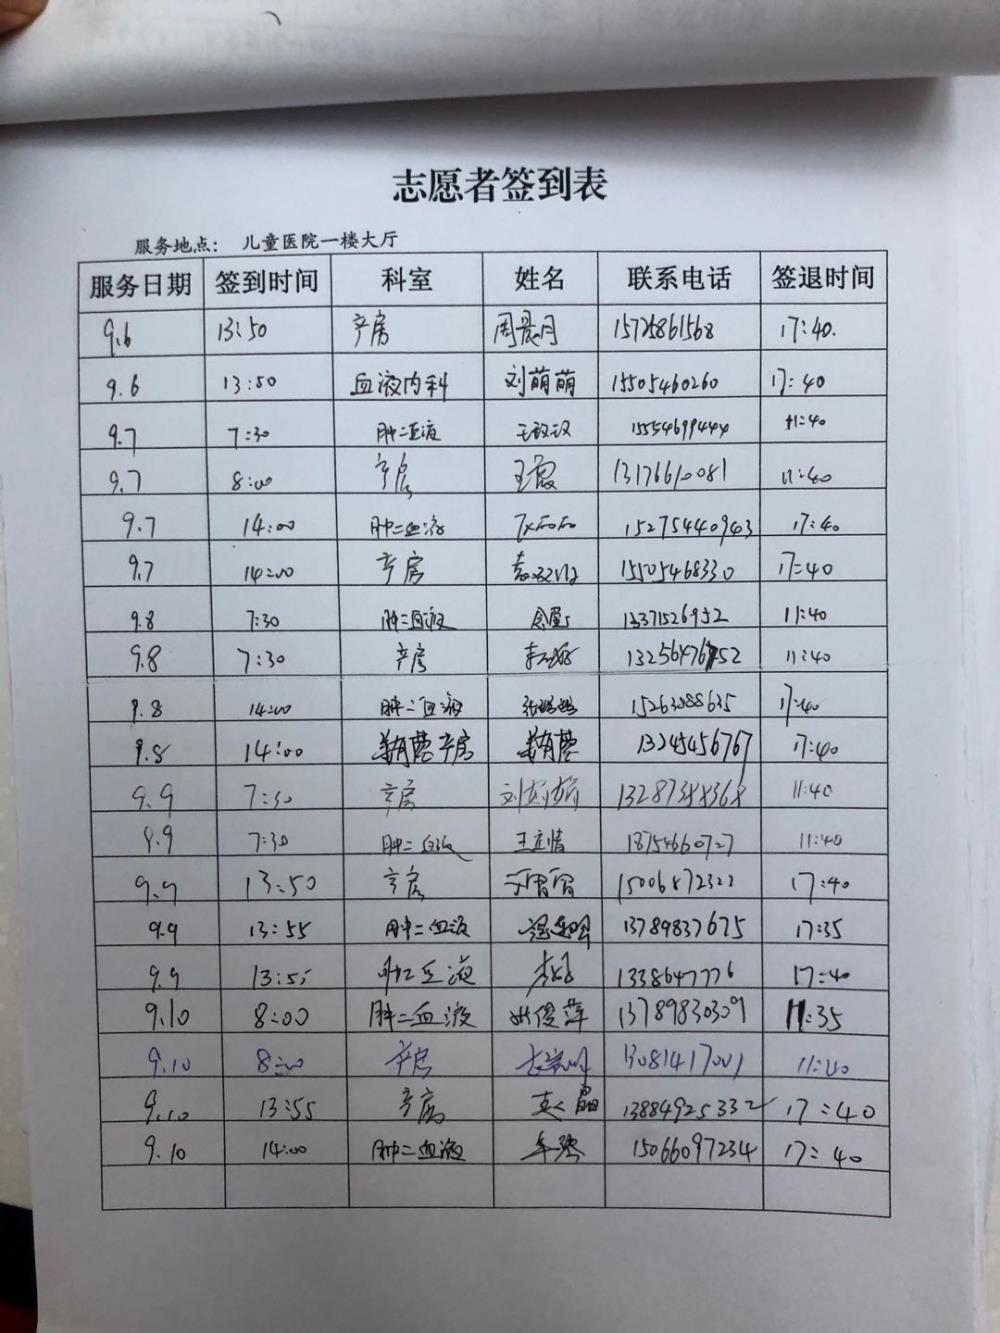 志愿者签到表
服务地点： 儿童医院一楼大厅
服务日期 签到时间 科室 姓名 联系电话 签退时间
9.6 13:50 产房 周晨月 15725861568 17:40.
9.6 13:50 血液内科 刘萌萌 15505460260 17:40
9.7 7:30 肿二血液 15554699444 11:40
9.7 8:00 产房 王霞 13176610081 11:40
9.7 14:00 肿二血液 15275440943 17:40
9.7 14:00 产房 15505468330 17:40
9.8 7:30 肿二血液 13371526952 11:40
9.8 7:30 产房 11:40
9.8 14:00 肿二血液 15263088635 17:40
9.8 14:00 产房 13245456767 17:40
9.9 7:30 产房 11:40
9.9 7:30 肿二血液 18754660727 11:40
9.9 13:50 产房 15006872322 17:40
9.9 13:55 肿二血液 13789837675 17:35
9.9 13:55 肿二血液 1338647776 17:40
9.10 8:00 肿二血液 姚俊萍 13789830309 11:35
9.10 8:00 产房 13081417001 11:40
9.10 13:55 产房 13884925332 17:40
9.10 14:00 肿二血液 15066097234 17:40